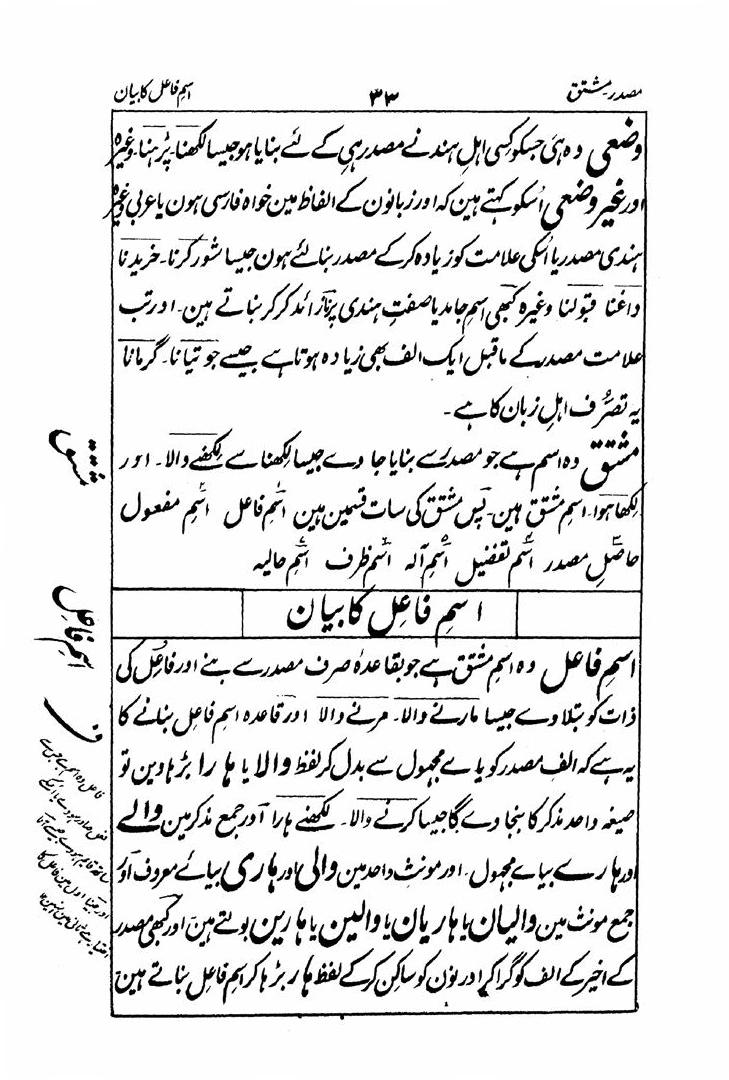 مصدر مشتق ۳۳ اسم فاعل کا بیان
وضعی وہ ہی جسکو کسی اہلِ ہند نے مصدر ہی کے لئے بنایا ہو جیسا لکھنا۔ پڑہنا۔ وغیرہ
اور غیر وضعی اُسکو کہتے ہین کہ اور زبانون کے الفاظ مین خواہ فارسی ہون یا عربی وغیرہ
ہندی مصدر یا اُسکی علامت کو زیادہ کر کے مصدر بنا لئے ہون جیسا شور کرنا۔ خریدنا
داغنا قبولنا وغیرہ کبھی اسم جامد یا صفت ہندی پر نا زائد کر کر بناتے ہین۔ اور تب
علامت مصدر کے ماقبل ایک الف بھی زیادہ ہوتا ہے جیسے جوتیانا۔ گرمانا
یہ تصرُّف اہلِ زبان کا ہے۔
مشتق وہ اسم ہے جو مصدر سے بنایا جاوے جیسا لکھنا سے لکھنے والا۔ اور
لکھا ہوا۔ اسم مشتق ہین۔ پس مشتق کی سات قسمین ہین اسم فاعل اسم مفعول
حاصلِ مصدر اسم تفضیل اسم آلہ اسم ظرف اسم حالیہ
مشتق
اسمِ فاعِل کا بیان
اسم فاعل
اسم فاعل وہ اسم مشتق ہے جو بقاعدہ صرف مصدر سے بنے اور فاعِل کی
ذات کو بتلاوے جیسا مارنے والا۔ مرنے والا اور قاعدہ اسم فاعل بنانے کا
یہ ہے کہ الف مصدر کو یاے مجہول سے بدل کر لفظ والا یا ہارا بڑہا دین تو
صیغہ واحد مذکر کا بنجاوے گا جیسا کرنے والا۔ لکھنے ہارا اور جمع مذکر مین والے
اور ہارے بیاے مجہول۔ اور مونث واحد مین والی اور ہاری بیائے معروف اور
جمع مونث مین والیان یا ہاریان یا والین یا ہارین بولتے ہین اور کبھی مصدر
کے اخیر کے الف کو گرا کر اور نون کو ساکن کر کے لفظ ہار بڑہا کر اسم فاعل بناتے ہین
ف